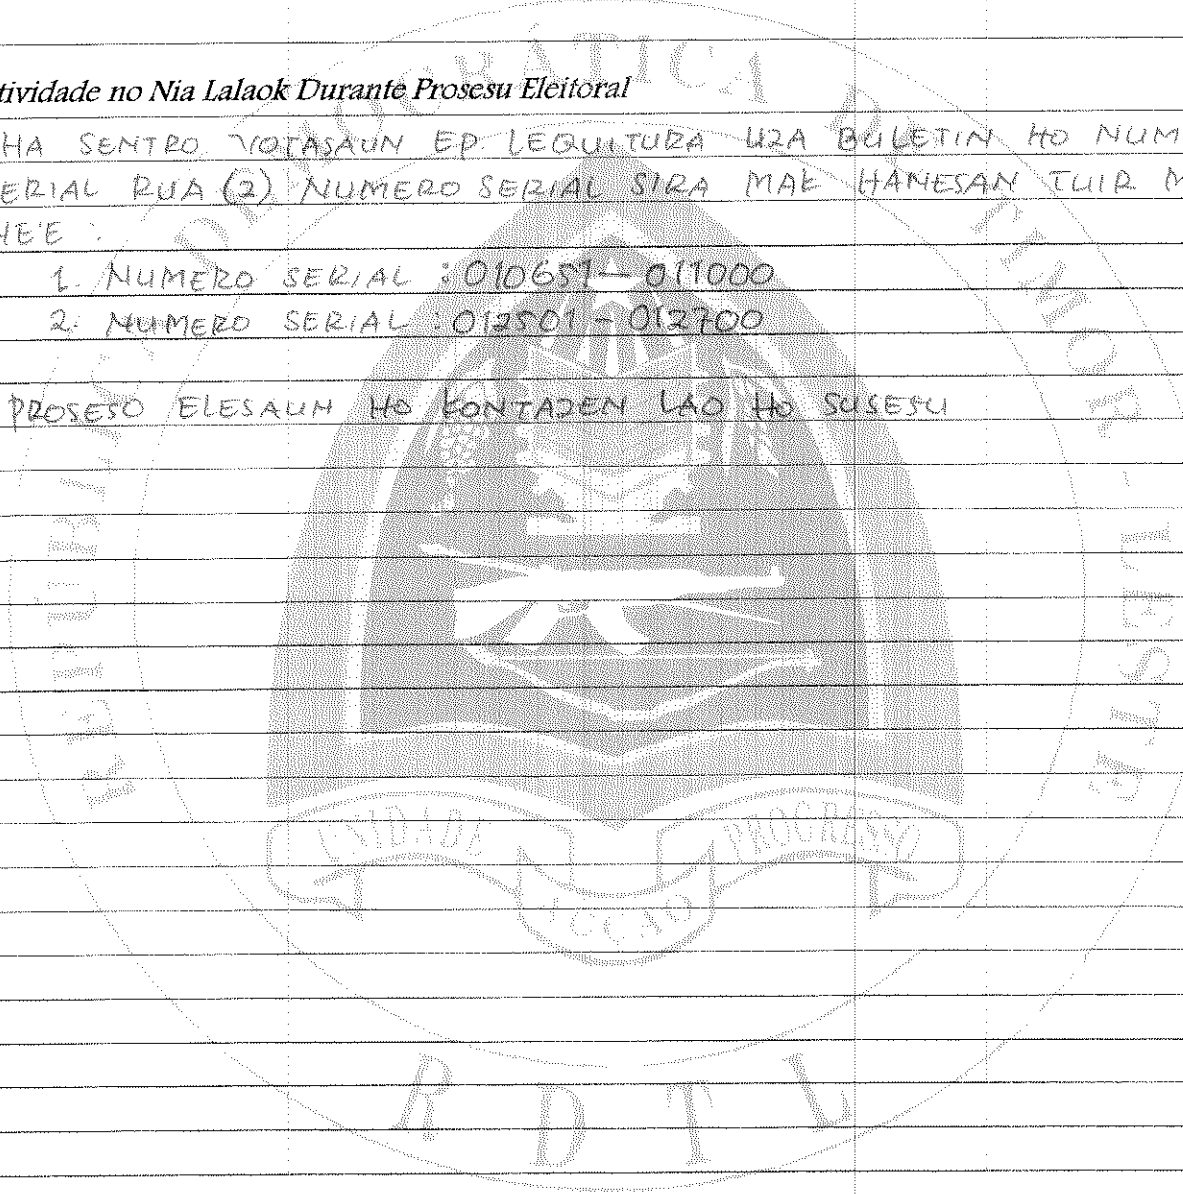 tividade no Nia Lalaok Durante Prosesu Eleitoral
HA SENTRO VOTASAUN EP. LEQUITURA UZA BULETIN HO NUM
ERIAL RUA (2) NUMERO SERIAL SIRA MAK HANESAN TUIR M
HE'E :
1. NUMERO SERIAL : 010651 - 011000
2. NUMERO SERIAL : 012501 - 012700
PROSESO ELESAUN HO KONTAJEN LAO HO SUSESU
REPÚBLICA DEMOCRÁTICA DE TIMOR - LESTE
UNIDADE
ACÇÃO
PROGRESSO
R D T L